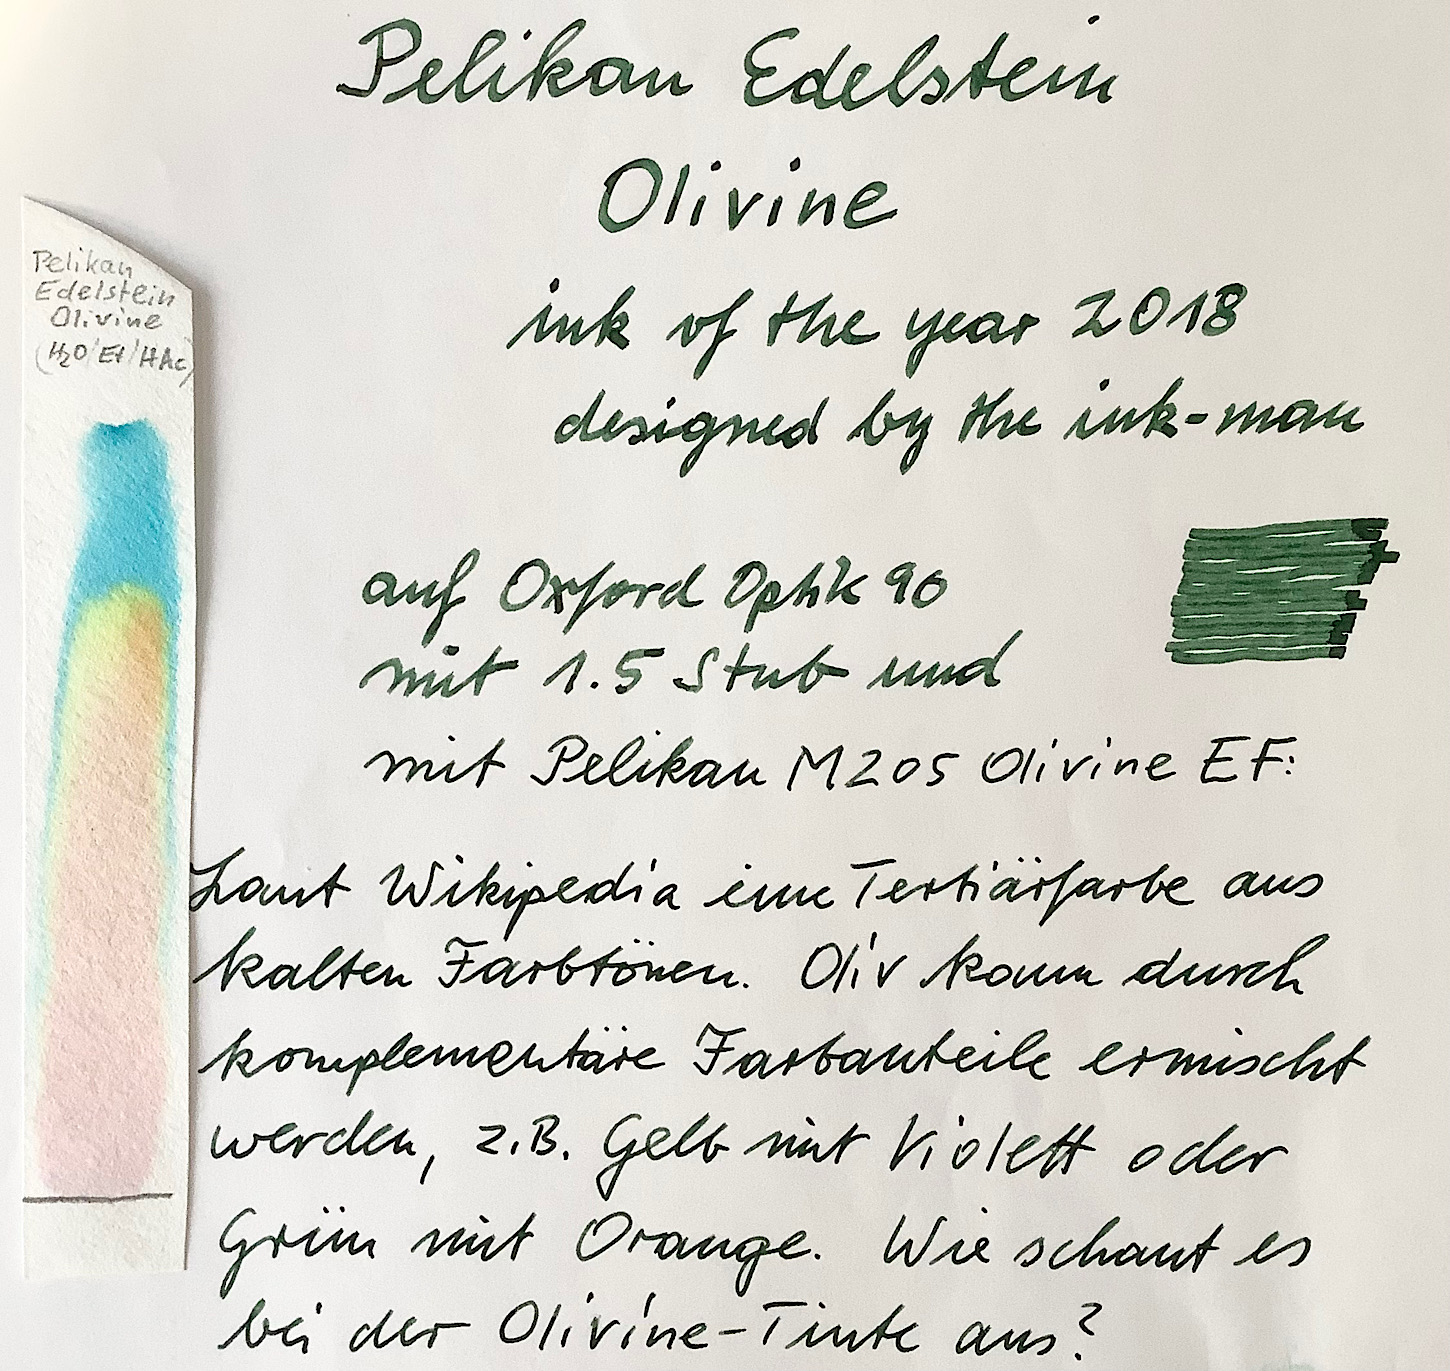 Pelikan Edelstein
Olivine
ink of the year 2018
designed by the ink-man
Pelikan
Edelstein
Olivine
(H₂O/Et/HAc)
auf Oxford Optik 90
mit 1.5 Stub und
mit Pelikan M205 Olivine EF:
Laut Wikipedia eine Tertiärfarbe aus
kalten Farbtönen. Oliv kann durch
komplementäre Farbanteile ermischt
werden, z.B. Gelb mit Violett oder
Grün mit Orange. Wie schaut es
bei der Olivine-Tinte aus?